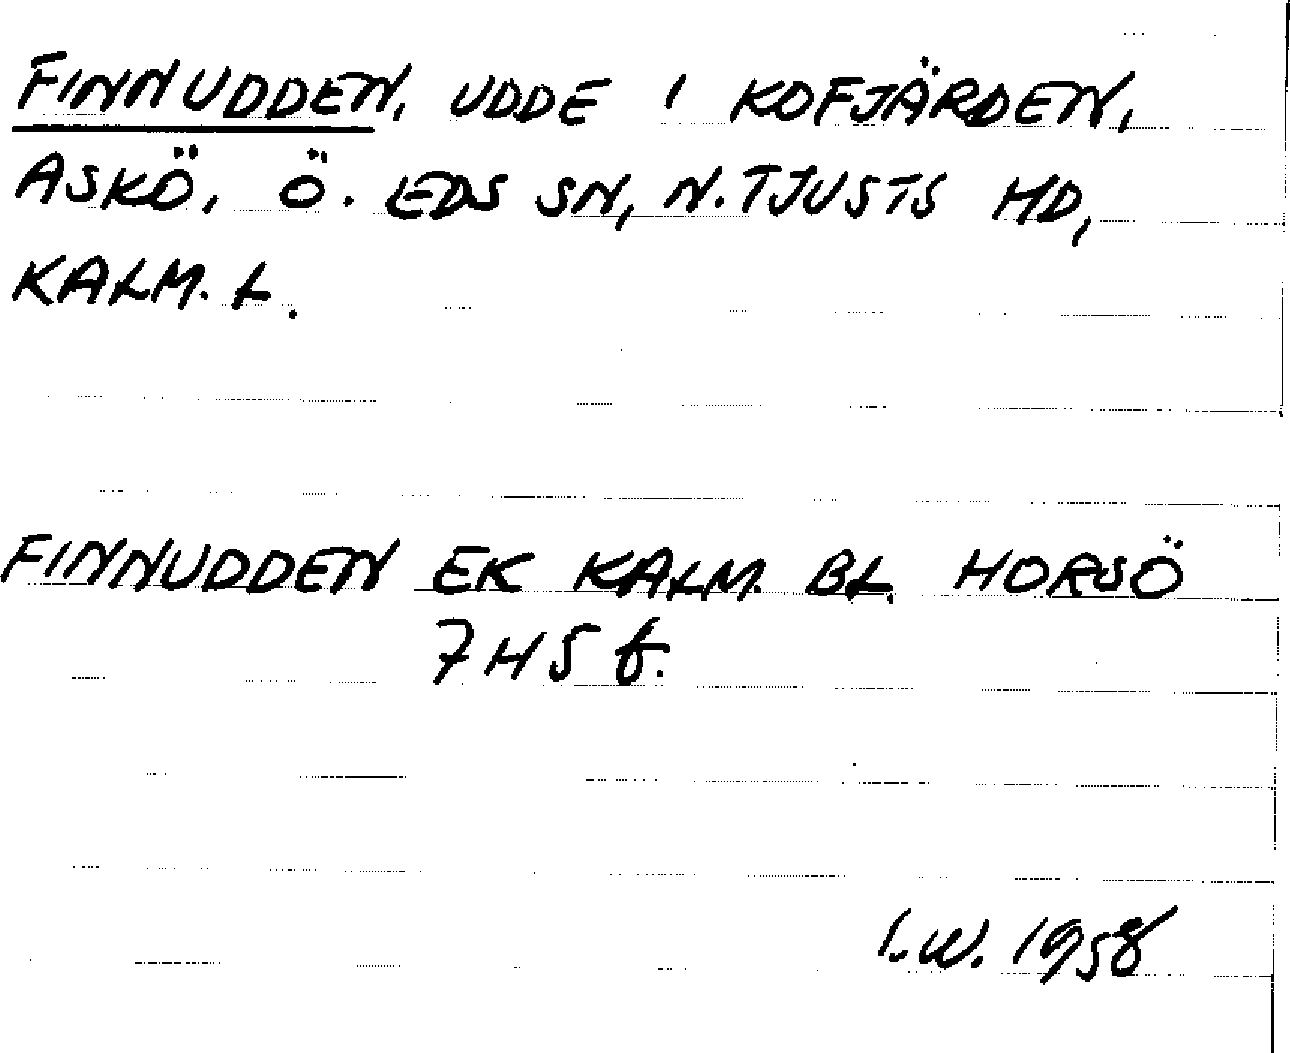 FINNUDDEN, UDDE I KOFJÄRDEN,
ASKÖ, Ö. EDS SN, N. TJUSTS HD,
KALM. L.
FINNUDDEN EK KALM. BL. HORSÖ
7H5f.
I.W. 1958